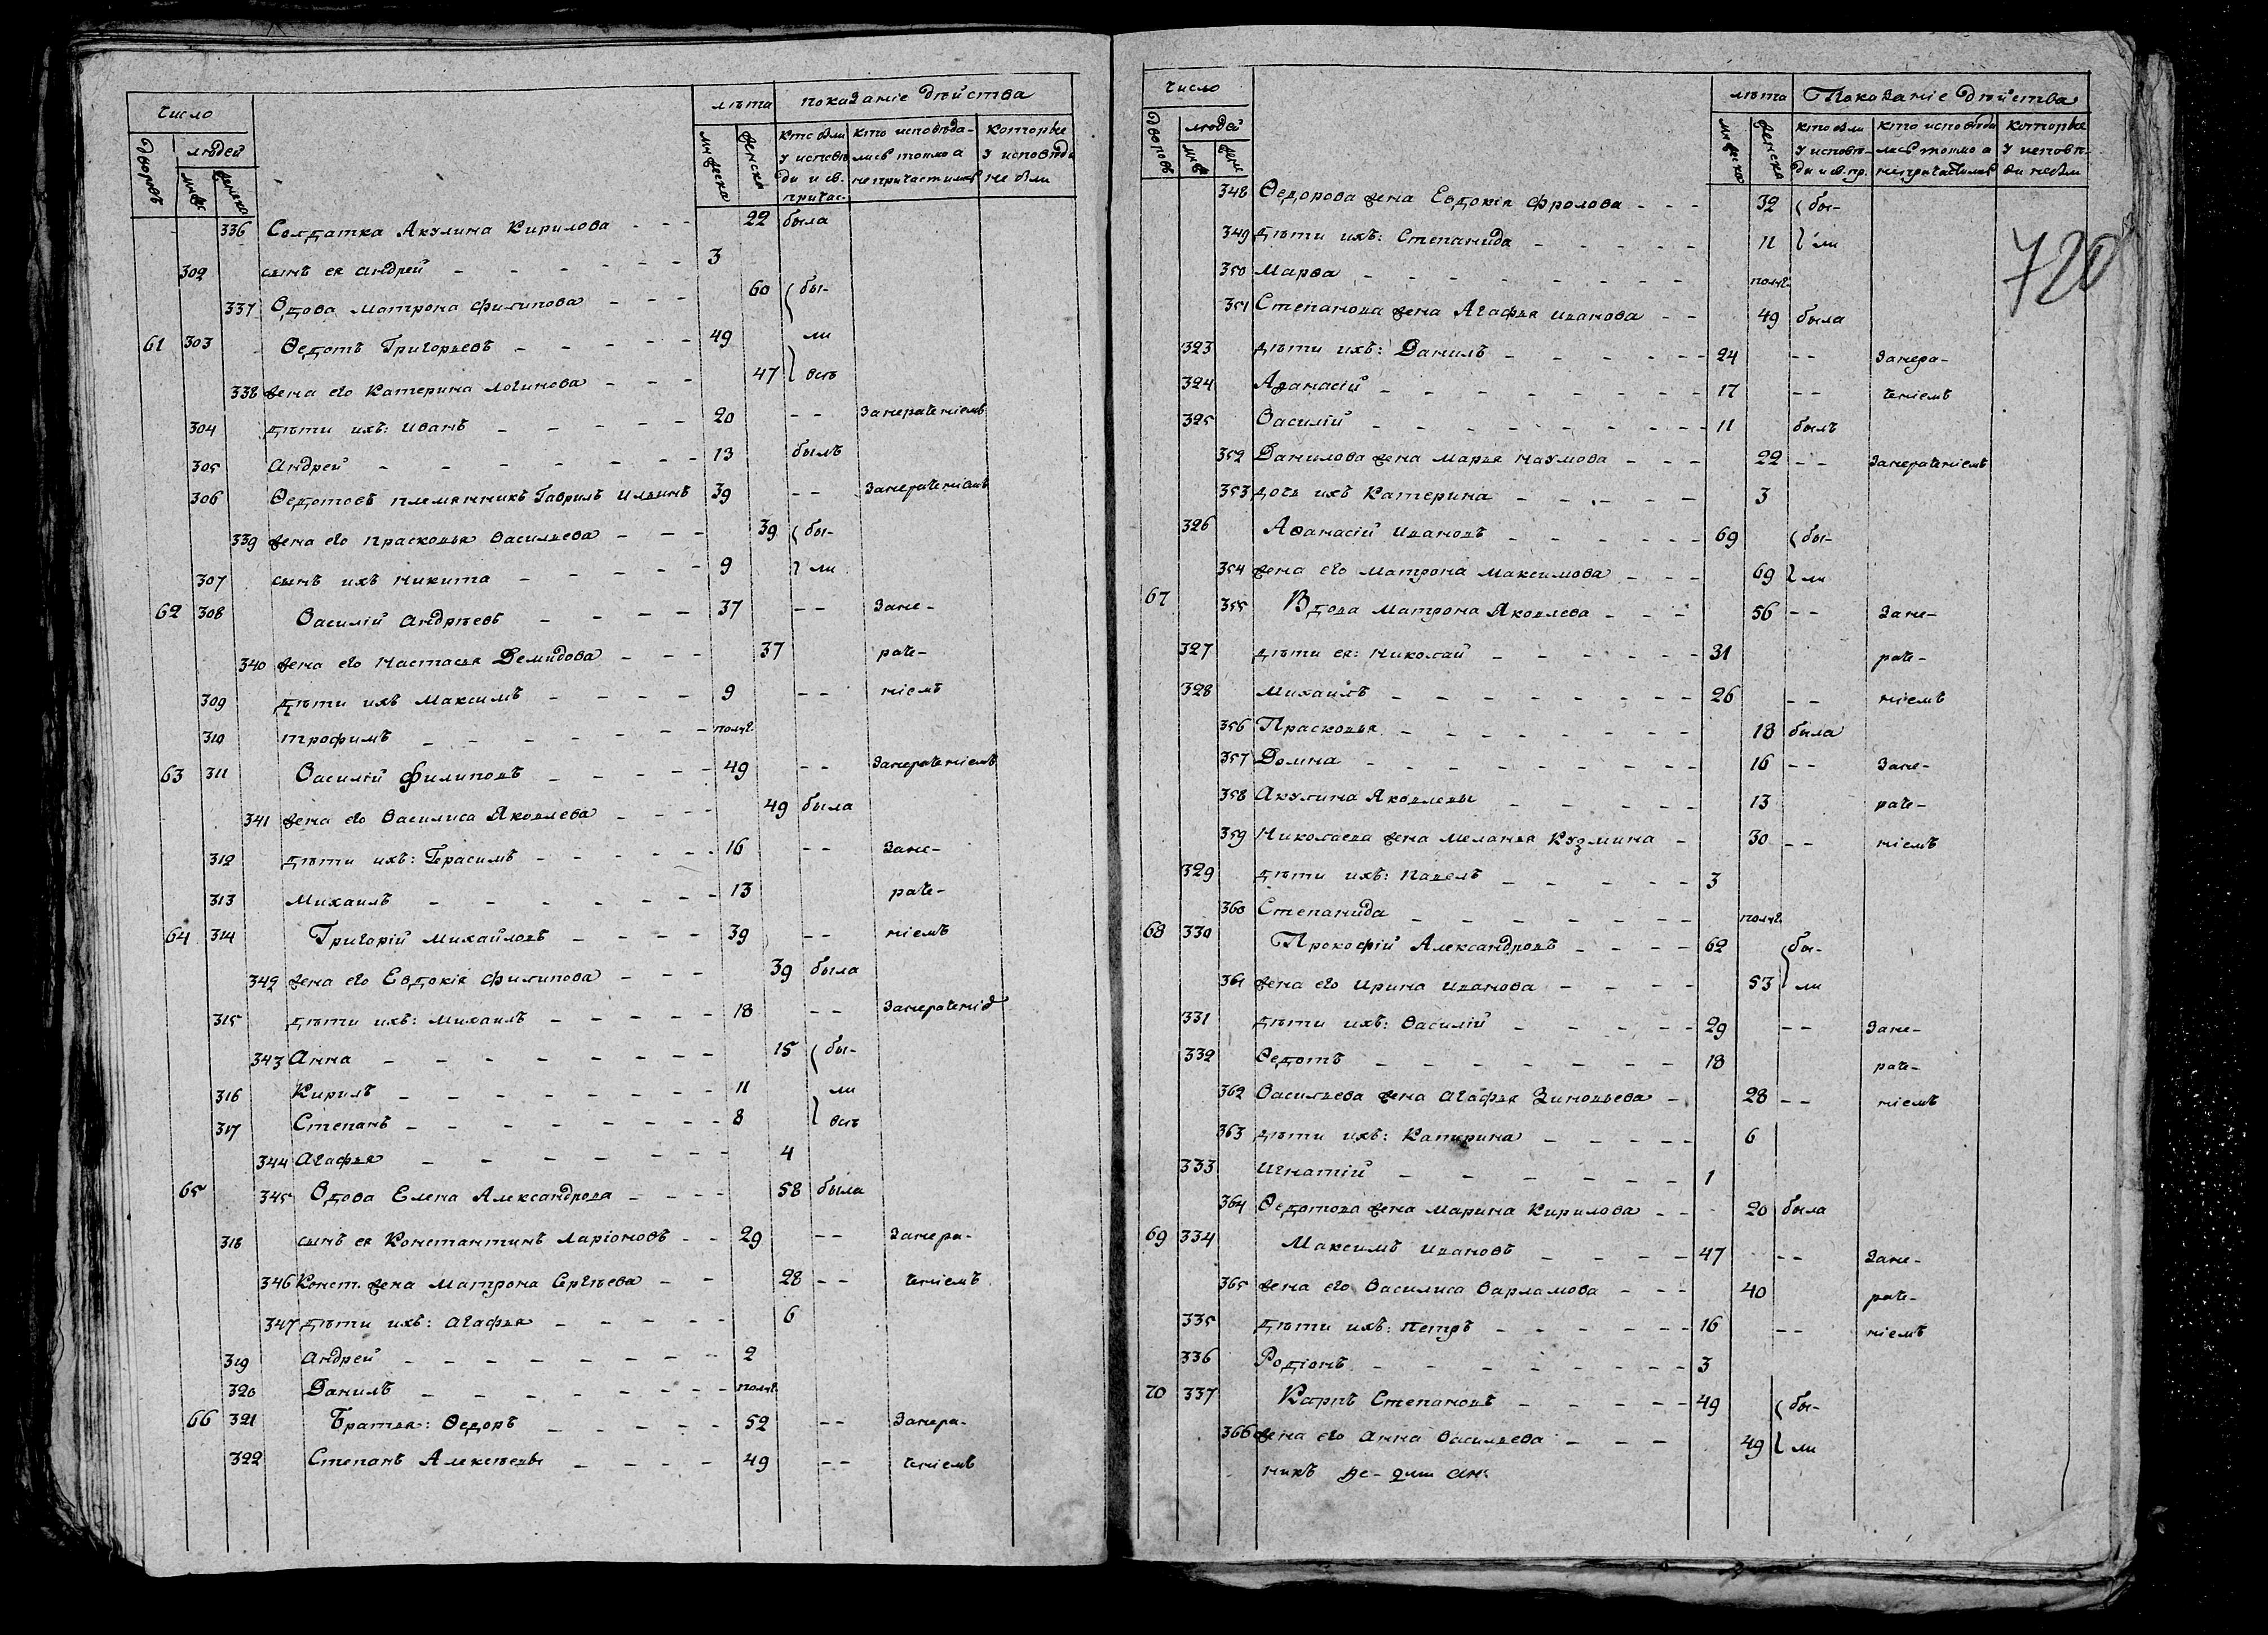 число
лѣта показаніе дѣйства
дворовъ людей мужеска женска кто были кто исповѣда- которые
у исповѣ лись токмо а у исповѣди
ди и св. не причастились не были
причас.
336 Солдатка Акулина Кирилова - - - 22 была
302 сынъ ея Андрей - - - 3
337 Вдова Матрона Филипова - - - 60 бы-
61 303 Ѳедотъ Григорьевъ - - - 49 ли
338 жена его Катерина Логинова - - - 47 всѣ
304 дѣти ихъ: Иванъ - - - 20 - - занераченіемъ
305 Андрей - - - 13 былъ
306 Ѳедотовъ племянникъ Гаврилъ Ильинъ 39 - - занераченіемъ
339 жена его Прасковья Васильева - - - 39 бы-
307 сынъ ихъ Никита - - - 9 ли
62 308 Василій Андрѣевъ - - - 37 - - зане-
340 жена его Настасья Демидова - - - 37 раче-
309 дѣти ихъ Максимъ - - - 9 - - ніемъ
310 Трофимъ - - - полуг.
63 311 Василій Филиповъ - - - 49 - - занераченіемъ
341 жена его Василиса Яковлева - - - 49 была
312 дѣти ихъ: Герасимъ - - - 16 - - зане-
313 Михаилъ - - - 13 раче-
64 314 Григорій Михайловъ - - - 39 - - ніемъ
342 жена его Евдокія Филипова - - - 39 была
315 дѣти ихъ: Михаилъ - - - 18 - - занераченіе
343 Анна - - - 15 бы-
316 Кирилъ - - - 11 ли
317 Степанъ - - - 8 всѣ
344 Агафья - - - 4
65 345 Вдова Елена Александрова - - - 58 была
318 сынъ ея Константинъ Ларіоновъ - - 29 - - занера-
346 Конст. жена Матрона Сергѣева - - 28 - - ченіемъ
347 дѣти ихъ: Агафья - - - 6
319 Андрей - - - 2
320 Данилъ - - - полуг.
66 321 Братья: Ѳедоръ - - - 52 - - занера-
322 Степанъ Алексѣевы - - - 49 - - ченіемъ
число
лѣта Показаніе дѣйства
дворовъ людей мужеска женска кто были кто исповѣда которые
у исповѣ- лись токмо а у исповѣ-
ди и св. пр. непричастились ди небыли
348 Ѳедорова жена Евдокія Фролова - - - 32 бы-
720
349 дѣти ихъ: Степанида - - - 11 ли
350 Марѳа - - - полуг.
351 Степанова жена Агафья Иванова - - 49 была
323 дѣти ихъ: Данилъ - - - 24 - - занера-
324 Аѳанасій - - - 17 - - ченіемъ
325 Василій - - - 11 былъ
352 Данилова жена Марья Наумова - - - 22 - - занераченіемъ
353 дочь ихъ Катерина - - - 3
326 Аѳанасій Ивановъ - - - 69 бы-
354 жена его Матрона Максимова - - - 69 ли
67 355 Вдова Матрона Яковлева - - - 56 - - зане-
327 дѣти ея: Николай - - - 31 раче-
328 Михаилъ - - - 26 - - ніемъ
356 Прасковья - - - 18 была
357 Домна - - - 16 - - зане-
358 Акулина Яковлевы - - - 13 раче-
359 Николаева жена Меланья Кузмина - 30 - - ніемъ
329 дѣти ихъ: Павелъ - - - 3
360 Степанида - - - полуг.
68 330 Прокофій Александровъ - - - 62 бы-
361 жена его Ирина Иванова - - - 53 ли
331 дѣти ихъ: Василій - - - 29 - - зане-
332 Ѳедотъ - - - 18 раче-
362 Васильева жена Агафья Зиновьева - 28 - - ніемъ
363 дѣти ихъ: Катерина - - - 6
333 Игнатій - - - 1
364 Ѳедотова жена Марина Кирилова - - 20 была
69 334 Максимъ Ивановъ - - - 47 - - зане-
365 жена его Василиса Варламова - - - 40 раче-
335 дѣти ихъ: Петръ - - - 16 - - ніемъ
336 Родіонъ - - - 3
70 337 Карпъ Степановъ - - - 49 бы-
366 жена его Анна Васильева - - - 49 ли
никъ